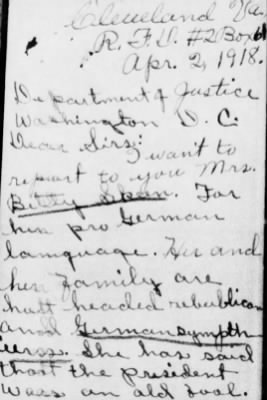 Cleveland Va.
R. F. D. #2 Box 61
Apr. 2, 1918.
Department of Justice
Washington D. C:
Dear Sirs:
I want to
report to you Mrs.
Bitty Skan. For
her pro German
language. Her and
her family are
hutt headed republican
and German sympth
izers. She has said
that the president
wass an old fool.